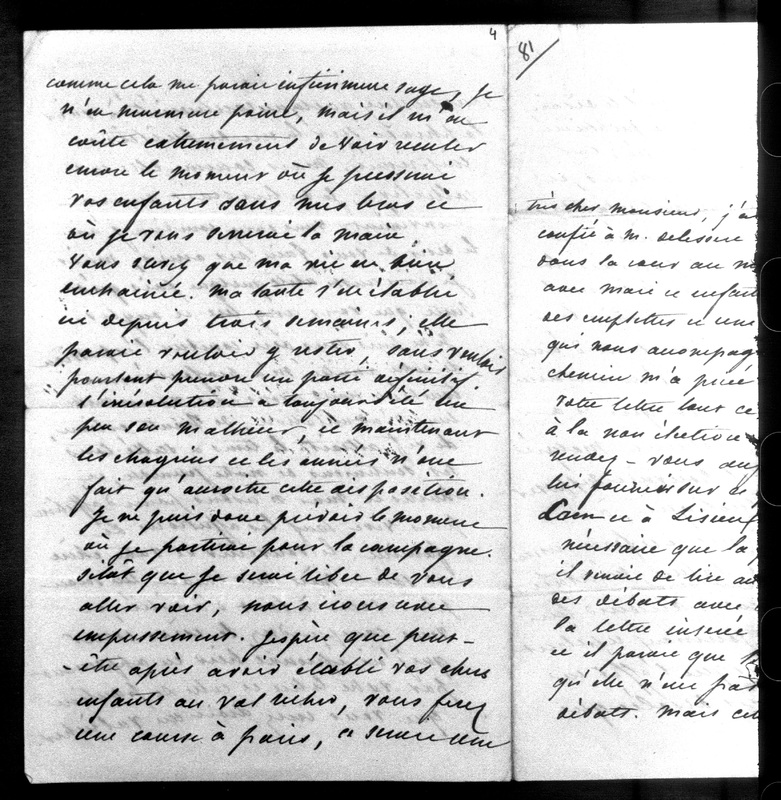 4
comme cela me paraie infiniment sage, je
n'en murmure point, mais il m'en
coûte extremement de voir reculer
encore le moment où je presserai
vos enfants dans mes bras et
où je vous serrerai la main,
vous savez que ma vie est bien
enchainée. ma tante s'est établie
ici depuis trois semaines; elle
paraie vouloir y rester, sans vouloir
pourtant prendre un parti définitif.
l'irrésolution a toujours été un
peu son malheur, et maintenant
les chagrins et les années n'ont
fait qu'accroitre cette disposition.
Je ne puis donc prévoir le moment
où je partirai pour la campagne.
sitôt que je serai libre de vous
aller voir, nous irons avec
empressement. J'espère que peut-
-être après avoir établi vos chers
enfants au val richer, vous ferez
une course à paris, ce serait une
81
très cher monsieur, j'ai
confié à m. delessert
dans la cour au
avec mari et enfant
des emplettes et une
qui nous accompag
chemin m'a prié
votre lettre tout ce
à la non élection
rendez-vous
lui fournir sur
Caen et à Lisieux
nécessaire que la
il venait de lire
des débats avec
la lettre insérée
et il parait que
qu'elle n'eut pas
débats. mais